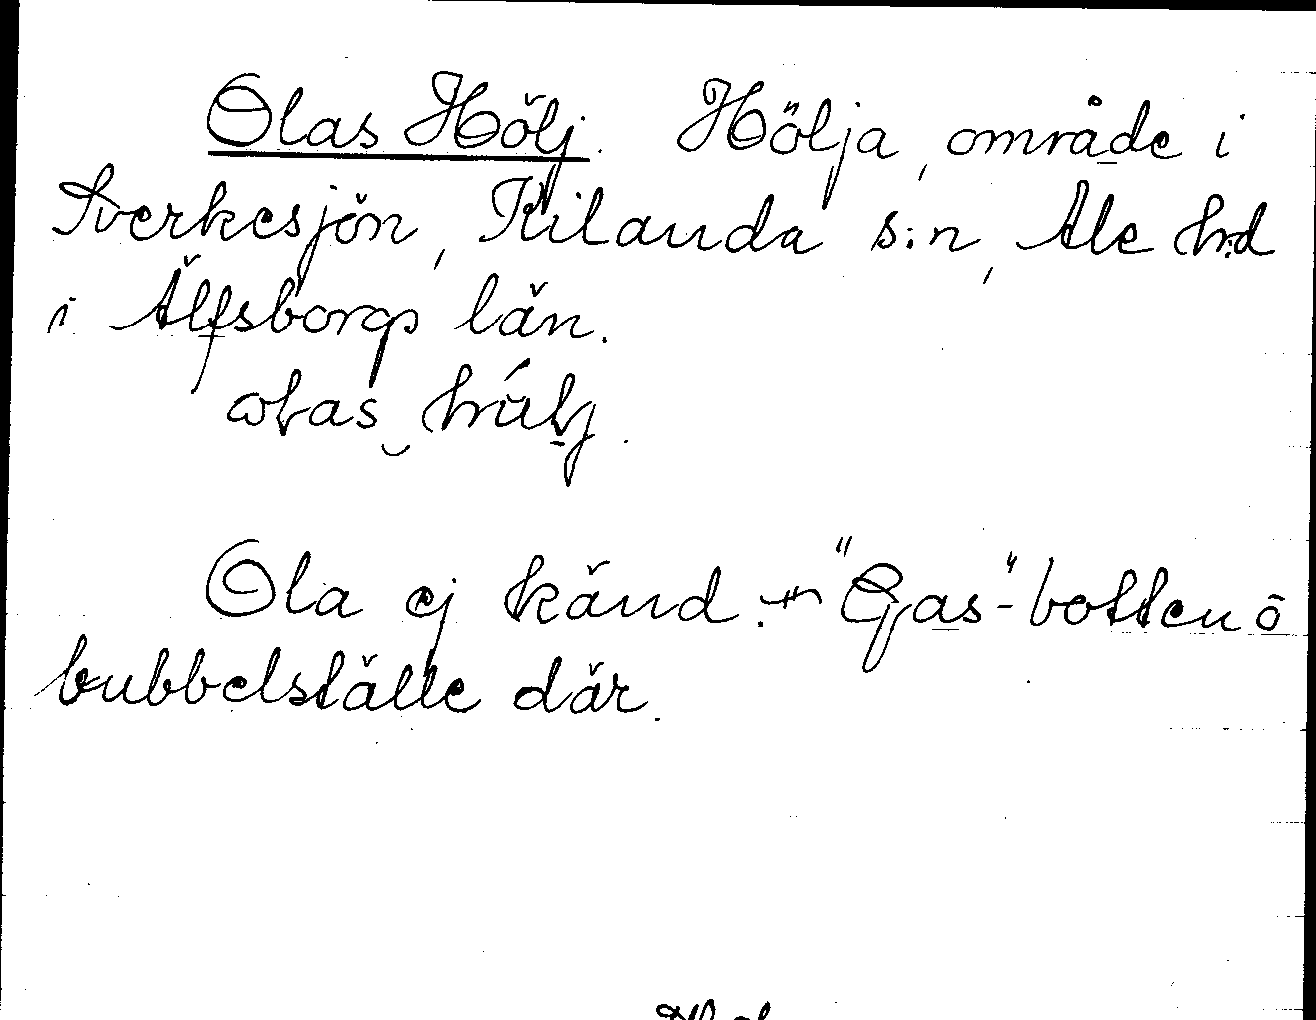 Olas Hölj. Hölja, område i
Sverkesjön, Kilanda s:n, Ale h:d
i Älfsborgs län.
ωlas‿húlj.
Ola ej känd. "Gas"-botten o
bubbelställe där.